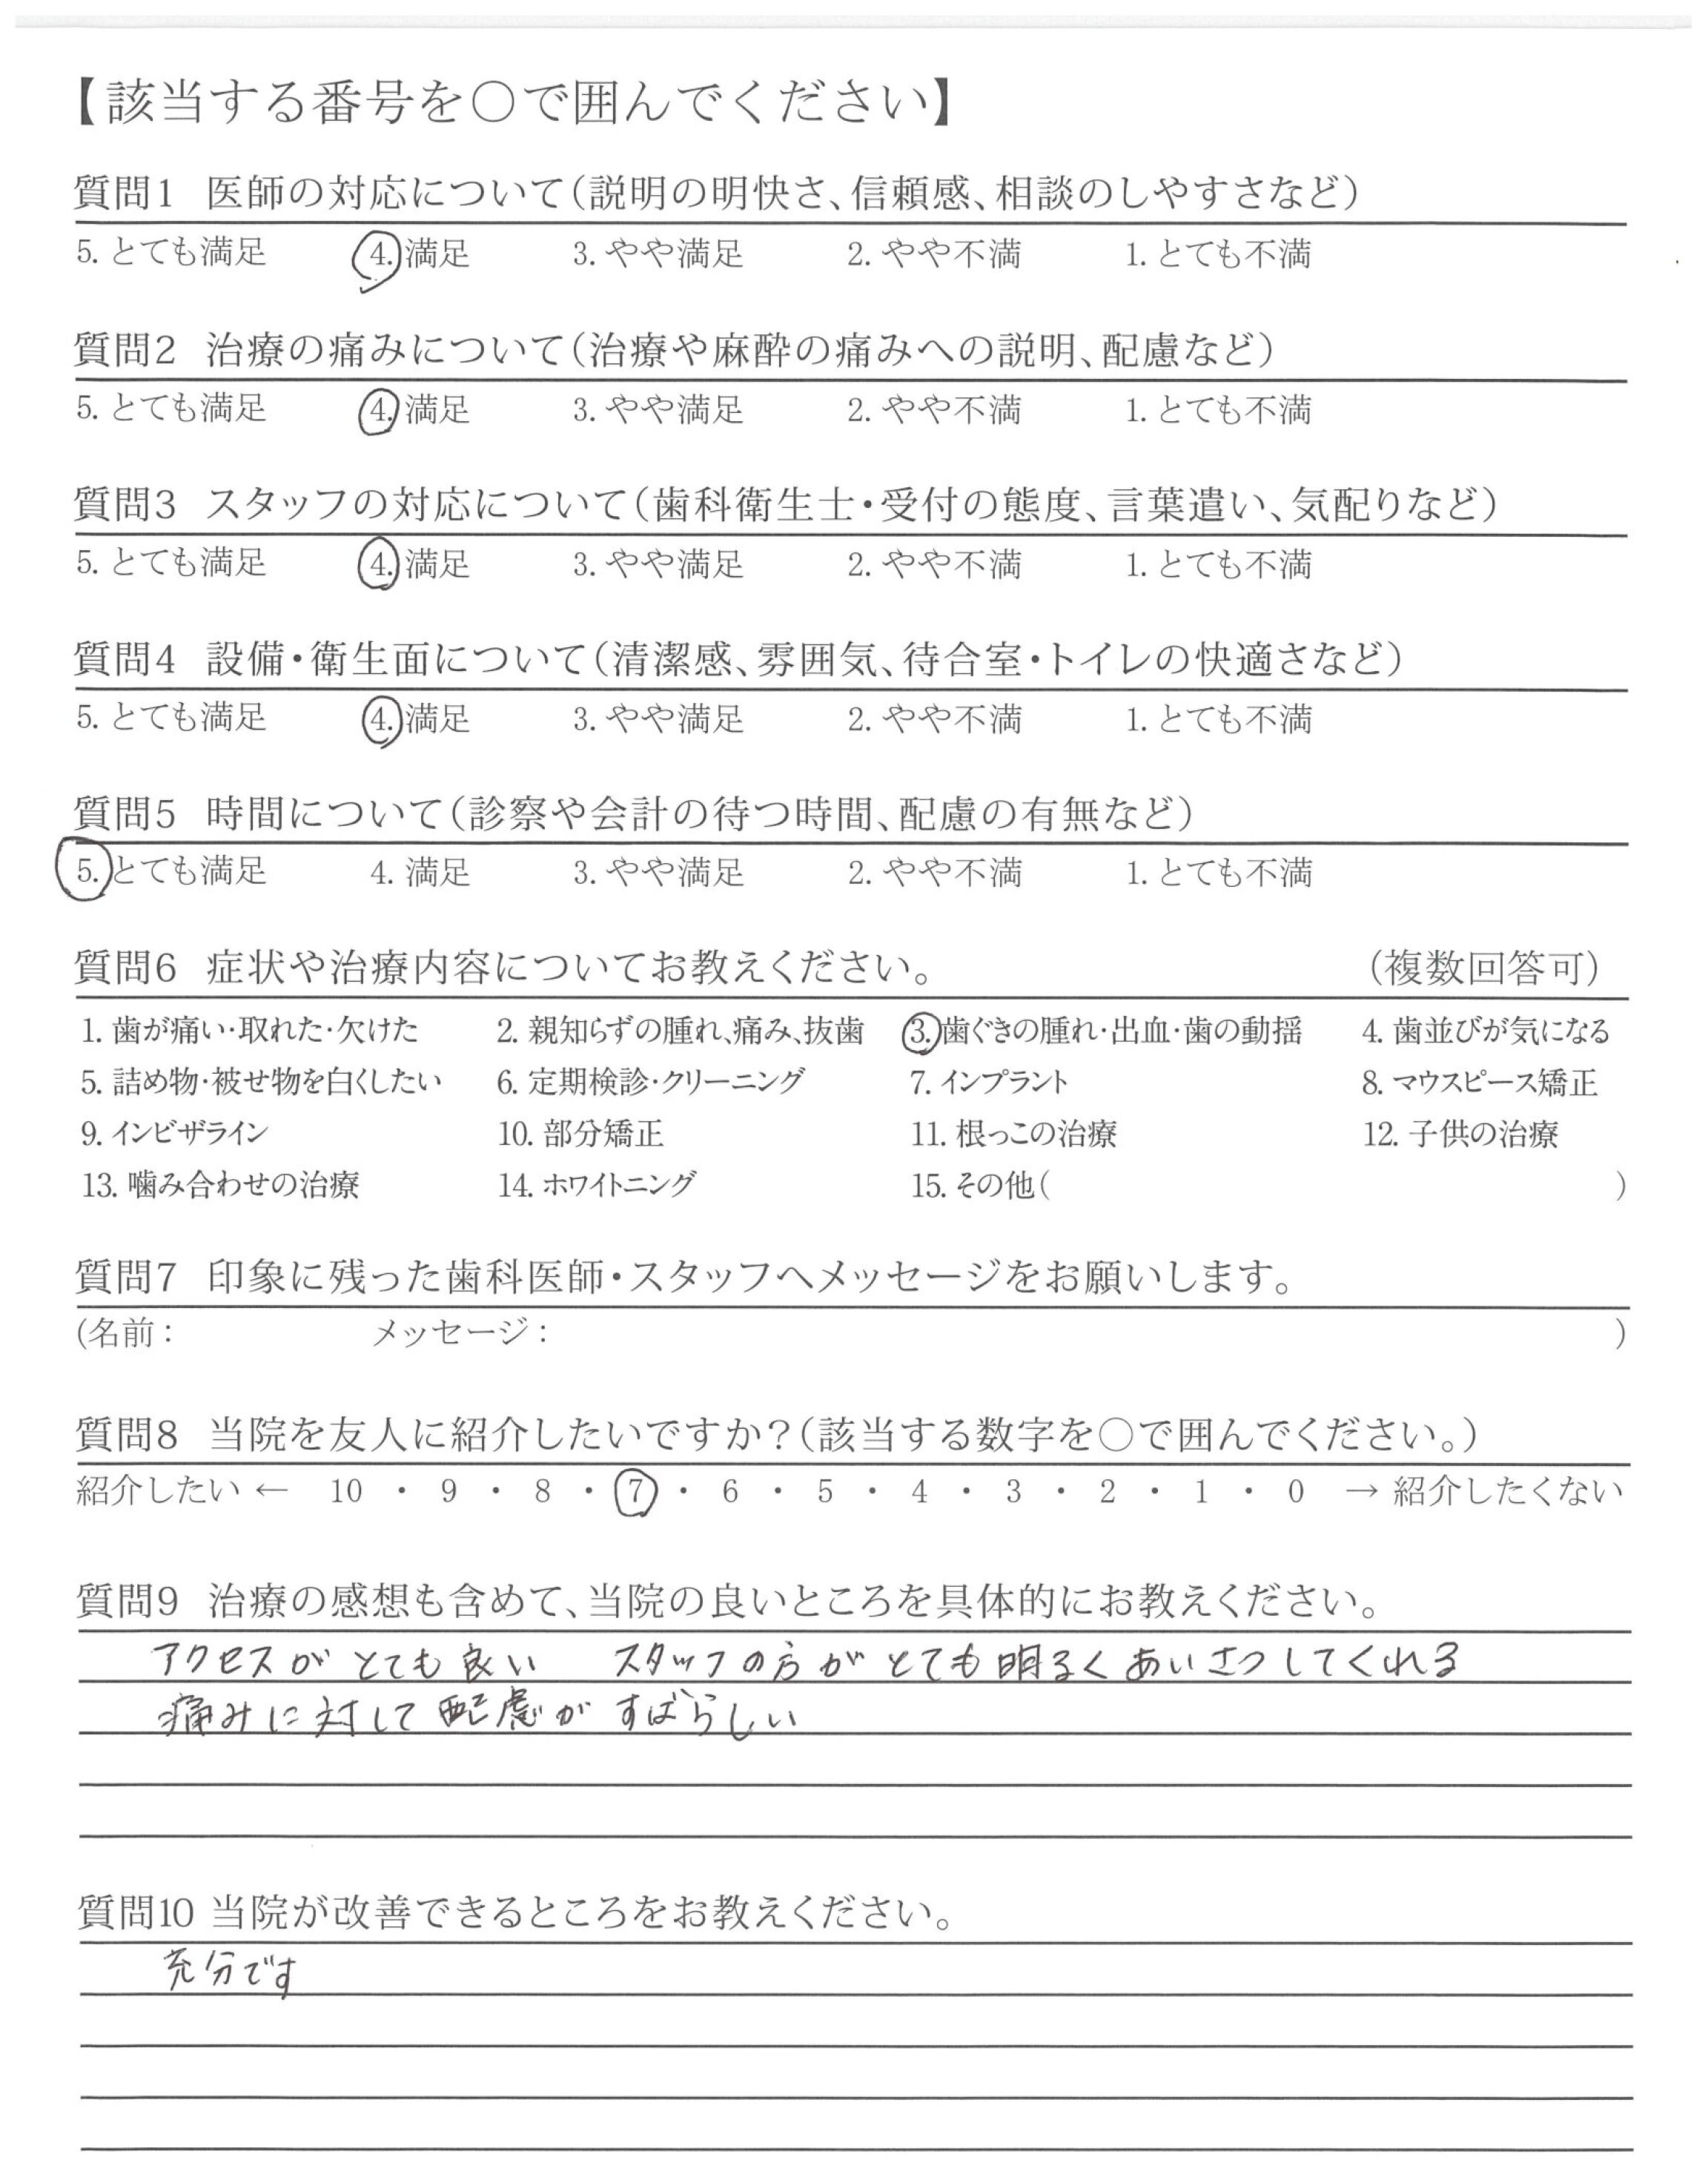 【該当する番号を○で囲んでください】
質問1 医師の対応について(説明の明快さ、信頼感、相談のしやすさなど)
5. とても満足 4. 満足 3. やや満足 2. やや不満 1. とても不満
質問2 治療の痛みについて(治療や麻酔の痛みへの説明、配慮など)
5. とても満足 4. 満足 3. やや満足 2. やや不満 1. とても不満
質問3 スタッフの対応について(歯科衛生士・受付の態度、言葉遣い、気配りなど)
5. とても満足 4. 満足 3. やや満足 2. やや不満 1. とても不満
質問4 設備・衛生面について(清潔感、雰囲気、待合室・トイレの快適さなど)
5. とても満足 4. 満足 3. やや満足 2. やや不満 1. とても不満
質問5 時間について(診察や会計の待つ時間、配慮の有無など)
5. とても満足 4. 満足 3. やや満足 2. やや不満 1. とても不満
質問6 症状や治療内容についてお教えください。 (複数回答可)
1. 歯が痛い・取れた・欠けた 2. 親知らずの腫れ、痛み、抜歯 3. 歯ぐきの腫れ・出血・歯の動揺 4. 歯並びが気になる
5. 詰め物・被せ物を白くしたい 6. 定期検診・クリーニング 7. インプラント 8. マウスピース矯正
9. インビザライン 10. 部分矯正 11. 根っこの治療 12. 子供の治療
13. 噛み合わせの治療 14. ホワイトニング 15. その他( )
質問7 印象に残った歯科医師・スタッフへメッセージをお願いします。
(名前: メッセージ: )
質問8 当院を友人に紹介したいですか?(該当する数字を○で囲んでください。)
紹介したい ← 10 ・ 9 ・ 8 ・ 7 ・ 6 ・ 5 ・ 4 ・ 3 ・ 2 ・ 1 ・ 0 → 紹介したくない
質問9 治療の感想も含めて、当院の良いところを具体的にお教えください。
アクセスがとても良い スタッフの方がとても明るくあいさつしてくれる
痛みに対して配慮がすばらしい
質問10 当院が改善できるところをお教えください。
充分です